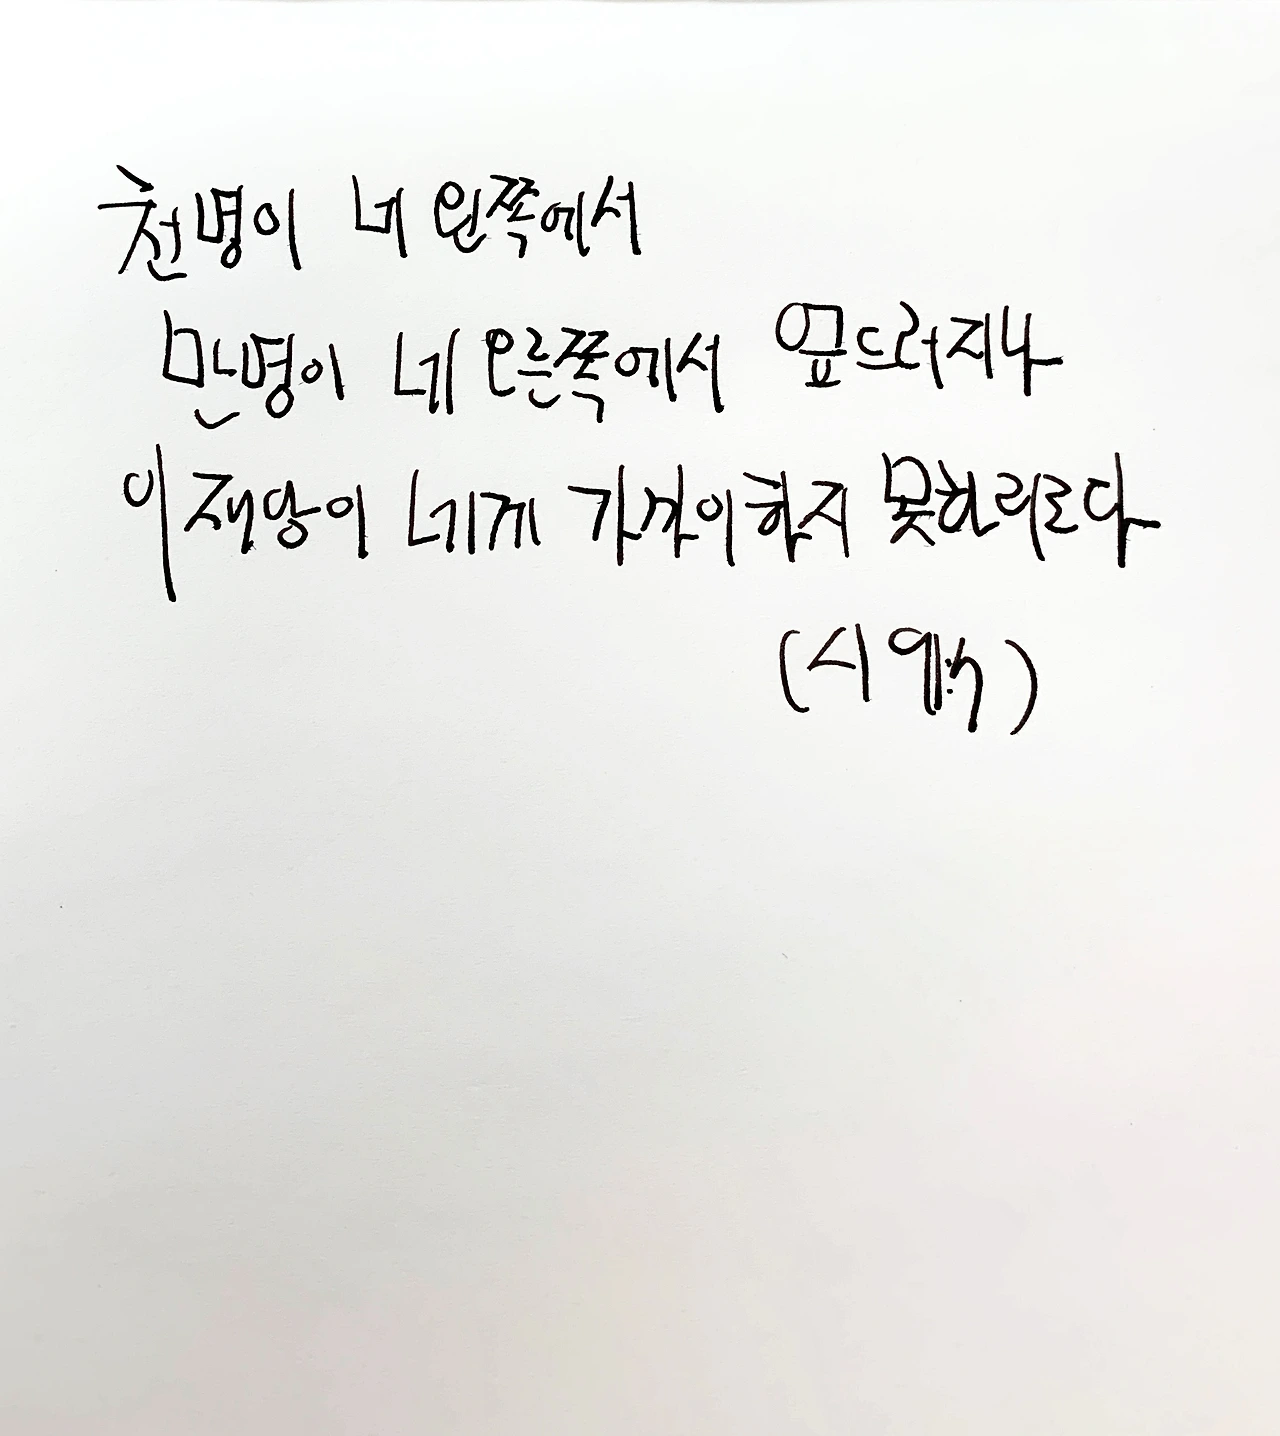 천명이 네 왼쪽에서
만명이 네 오른쪽에서 엎드러지나
이 재앙이 네게 가까이하지 못하리로다
(시 91:7)